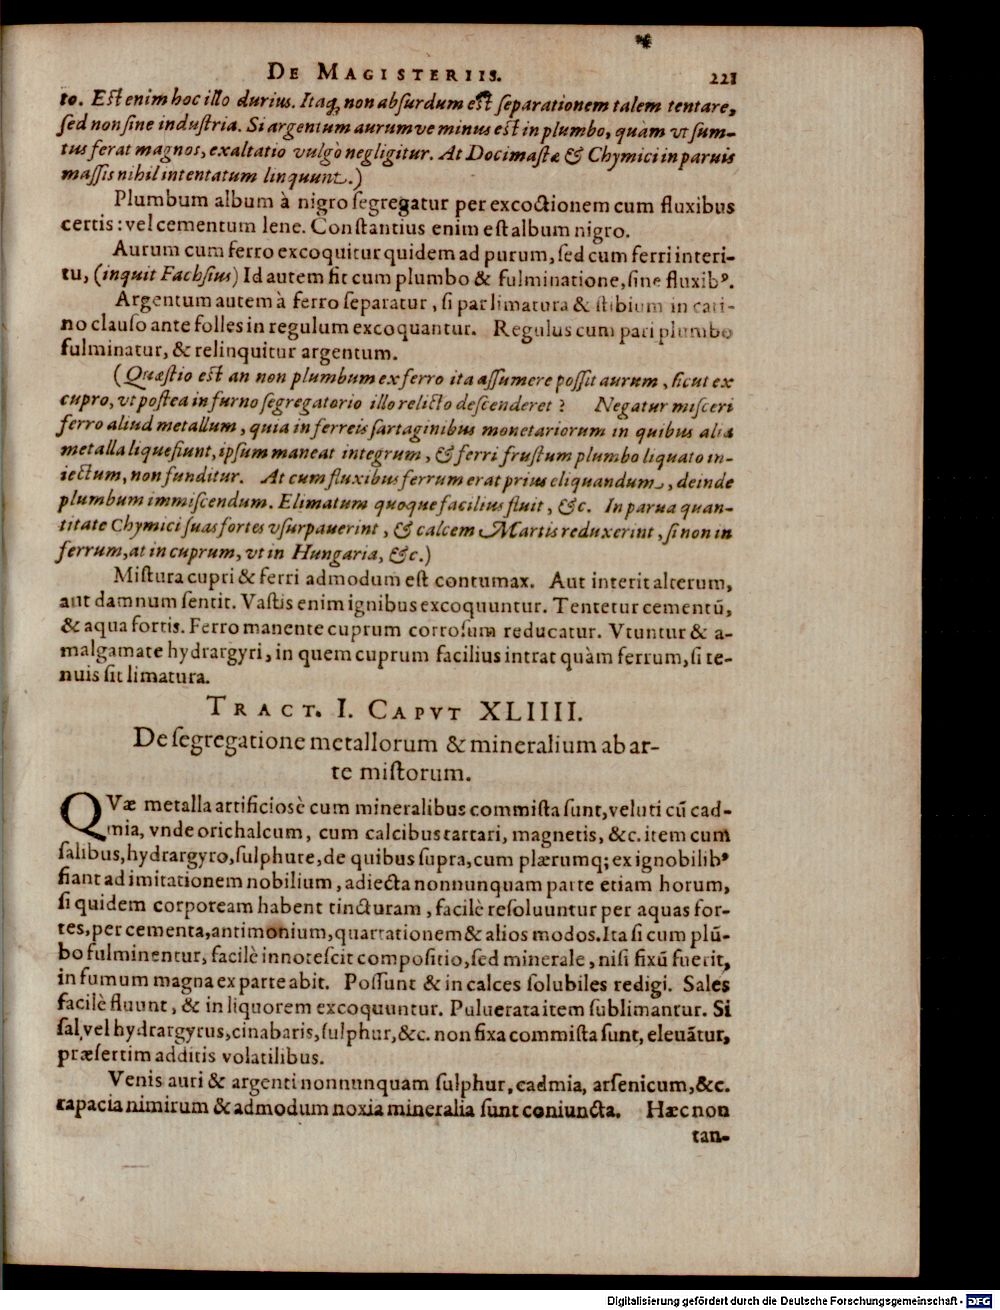 DE MAGISTERIIS. 221
to. Est enim hoc illo durius. Itaq; non absurdum est separationem talem tentare,
sed non sine industria. Si argentum aurumve minus est in plumbo, quam vt sum-
tus ferat magnos, exaltatio vulgò negligitur. At Docimastæ & Chymici in paruis
massis nihil intentatum linquunt.)
Plumbum album à nigro segregatur per excoctionem cum fluxibus
certis: vel cementum lene. Constantius enim est album nigro.
Aurum cum ferro excoquitur quidem ad purum, sed cum ferri interi-
tu, (inquit Fachsius) Id autem fit cum plumbo & fulminatione, sine fluxibꝰ.
Argentum autem à ferro separatur, si par limatura & stibium in cati-
no clauso ante folles in regulum excoquantur. Regulus cum pari plumbo
fulminatur, & relinquitur argentum.
(Quæstio est an non plumbum ex ferro ita assumere possit aurum, sicut ex
cupro, vt postea in furno segregatorio illo relicto descenderet? Negatur misceri
ferro aliud metallum, quia in ferreis sartaginibus monetariorum in quibus alia
metalla liquefiunt, ipsum maneat integrum, & ferri frustum plumbo liquato in-
iectum, non funditur. At cum fluxibus ferrum erat prius eliquandum, deinde
plumbum immiscendum. Elimatum quoque facilius fluit, &c. In parua quan-
titate Chymici suas fortes vsurpauerint, & calcem Martis reduxerint, si non in
ferrum, at in cuprum, vt in Hungaria, &c.)
Mistura cupri & ferri admodum est contumax. Aut interit alterum,
aut damnum sentit. Vastis enim ignibus excoquuntur. Tentetur cementū,
& aqua fortis. Ferro manente cuprum corrosum reducatur. Vtuntur & a-
malgamate hydrargyri, in quem cuprum facilius intrat quàm ferrum, si te-
nuis sit limatura.
TRACT. I. CAPVT XLIIII.
De segregatione metallorum & mineralium ab ar-
te mistorum.
QVæ metalla artificiosè cum mineralibus commista sunt, veluti cū cad-
mia, vnde orichalcum, cum calcibus tartari, magnetis, &c. item cum
salibus, hydrargyro, sulphure, de quibus supra, cum plærumq; ex ignobilibꝰ
fiant ad imitationem nobilium, adiecta nonnunquam parte etiam horum,
si quidem corpoream habent tincturam, facilè resoluuntur per aquas for-
tes, per cementa, antimonium, quartationem & alios modos. Ita si cum plū-
bo fulminentur, facilè innotescit compositio, sed minerale, nisi fixū fuerit,
in fumum magna ex parte abit. Possunt & in calces solubiles redigi. Sales
facilè fluunt, & in liquorem excoquuntur. Puluerata item sublimantur. Si
sal, vel hydrargyrus, cinabaris, sulphur, &c. non fixa commista sunt, eleuātur,
præsertim additis volatilibus.
Venis auri & argenti nonnunquam sulphur, cadmia, arsenicum, &c.
rapacia nimirum & admodum noxia mineralia sunt coniuncta. Hæc non
tan-
Digitalisierung gefördert durch die Deutsche Forschungsgemeinschaft - DFG